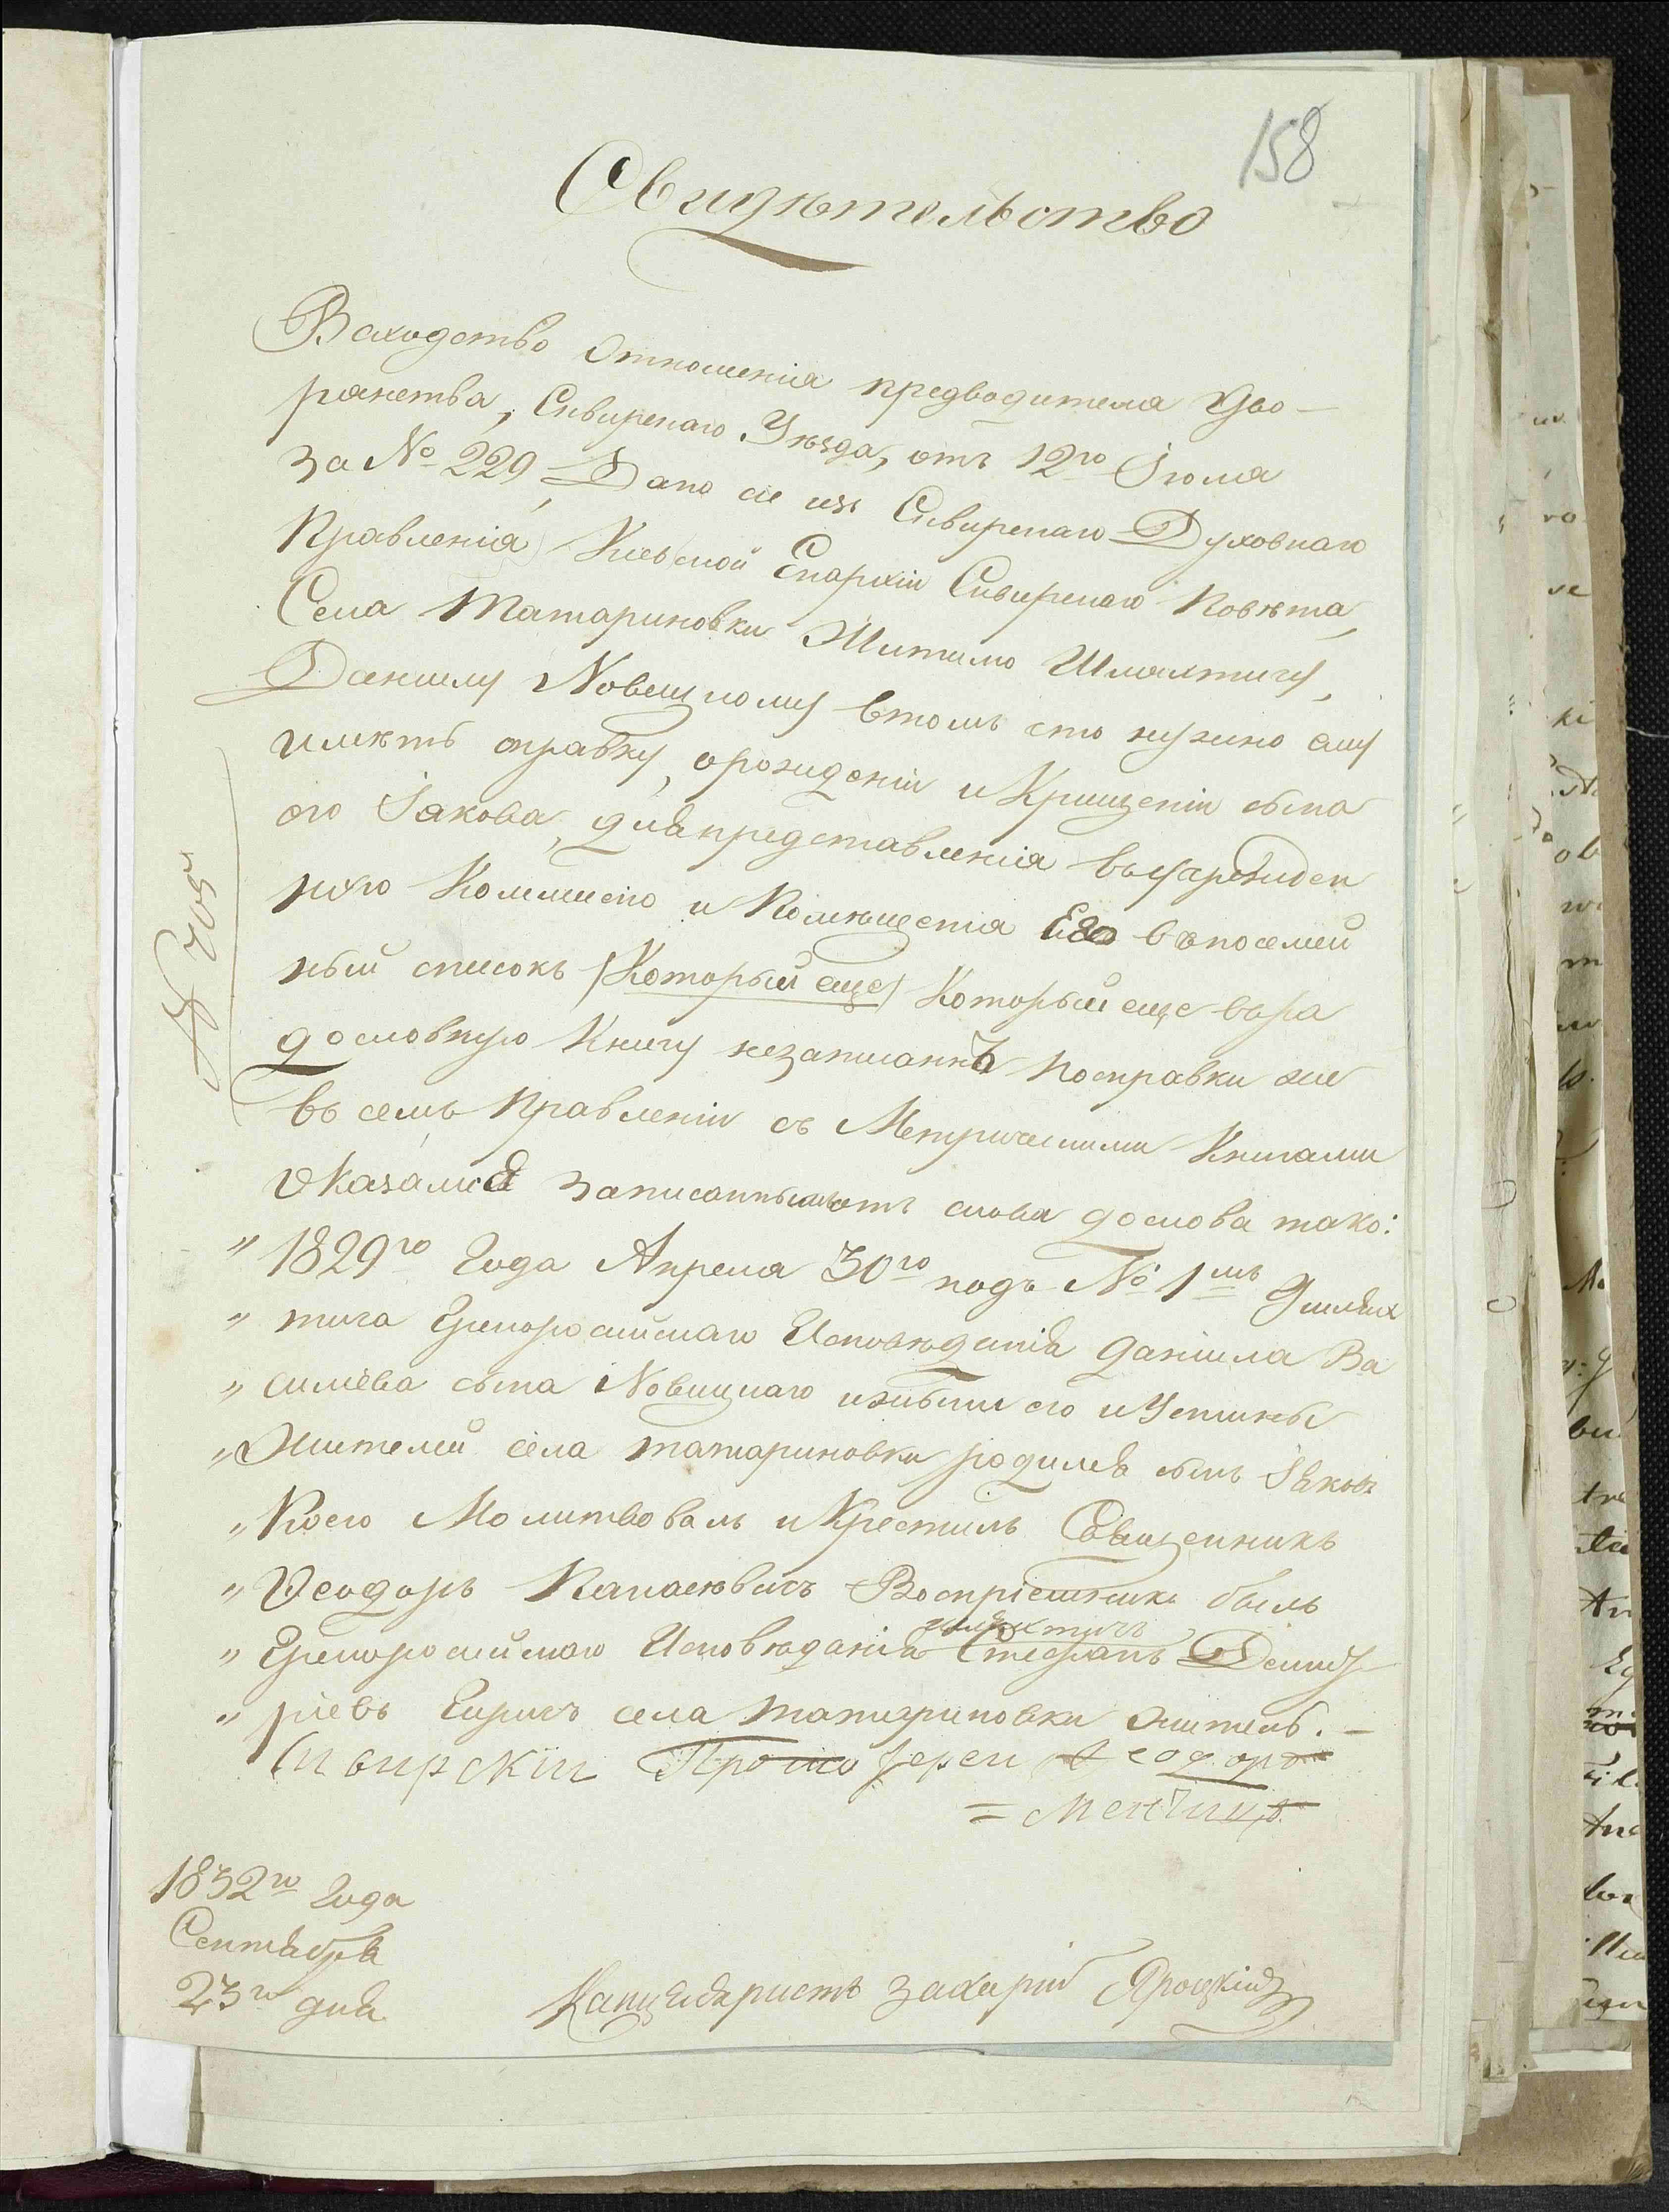 158
Свидѣтельство
Всходство Отношенія предводителя дво-
рянства, Сквирскаго Уѣзда, отъ 12го Іюля
за № 229, Дано сіе изъ Сквирскаго Духовнаго
Правленія, Кіевской Епархіи Сквирскаго Повѣта,
Села Татариновки Жителю Шляхтичу,
Данилу Новицкому втомъ что нужно ему
имѣть справку, орожденіи и Крищеніи сына
его Іакова, для представленія
Коммисію и Помѣщенія Его въ посемей
ный списокъ (Который еще) Который еще вора
дословную Книгу незаписанъ Посправки же
въ семъ Правленіи съ Метрическими Книгами
Оказался записаннымъ отъ слова дослова тако:
„ 1829го Года Апреля 30го подъ № 1мъ у шлях
„ тича Грекороссійскаго Исповѣданія Даніила Ва
„ силіева сына Новицкаго и жены его Устины
„ Жителей села татариновки родился сынъ Іяковъ
„ Коего Молитвовалъ и Крестилъ Священникъ
„ Ѳеодоръ Воспріемникъ былъ
„ Грекороссійскаго Исповѣданія шляхтичъ Стефанъ Димит
„ ріевъ села татариновки житель. —
Сквирскій Протоіерей Ѳеодоръ
1832го Года
Сентября
23го дня
Канцеляристъ Захарій Яроцкій
№ 705